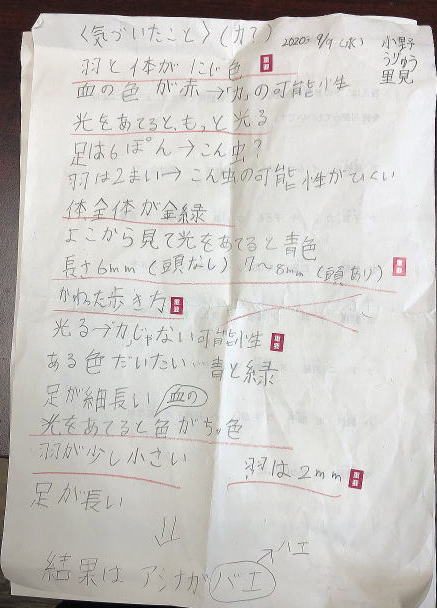 〈気づいたこと〉(カ?) 2020年 9/9(水) 小野
うりゅう
里見
羽と体がにじ色 重要
血の色が赤→カの可能性
光をあてると、もっと光る
足は6ぽん→こん虫?
羽は2まい→こん虫の可能性がひくい
体全体が金緑
よこから見て光をあてると青色
長さ6mm(頭なし) 7〜8mm(頭あり) 重要
かわった歩き方 重要
光る→カじゃない可能性 重要
ある色だいたい…青と緑
足が細長い 血の
光をあてると色がちゃ色
羽が少し小さい 羽は2mm 重要
足が長い
⇓
結果はアシナガバエ→ハエ